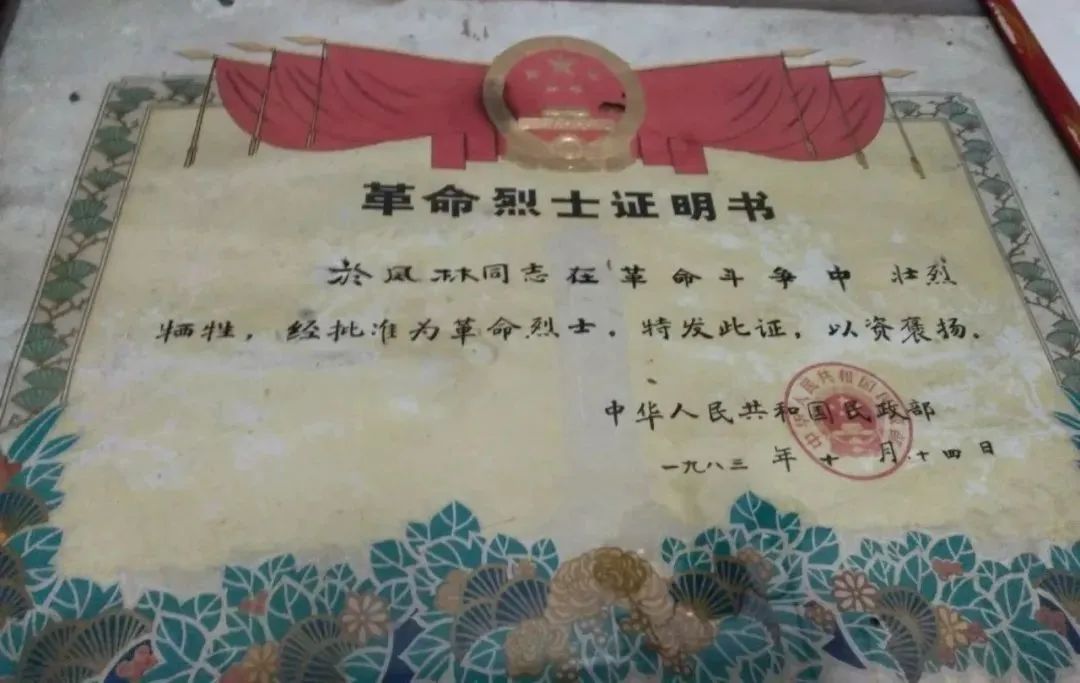 革命烈士证明书
於凤林同志在革命斗争中 壮烈
牺牲，经批准为革命烈士。特发此证，以资褒扬。
中华人民共和国民政部
一九八三 年 十 月 十四日
中华人民共和国